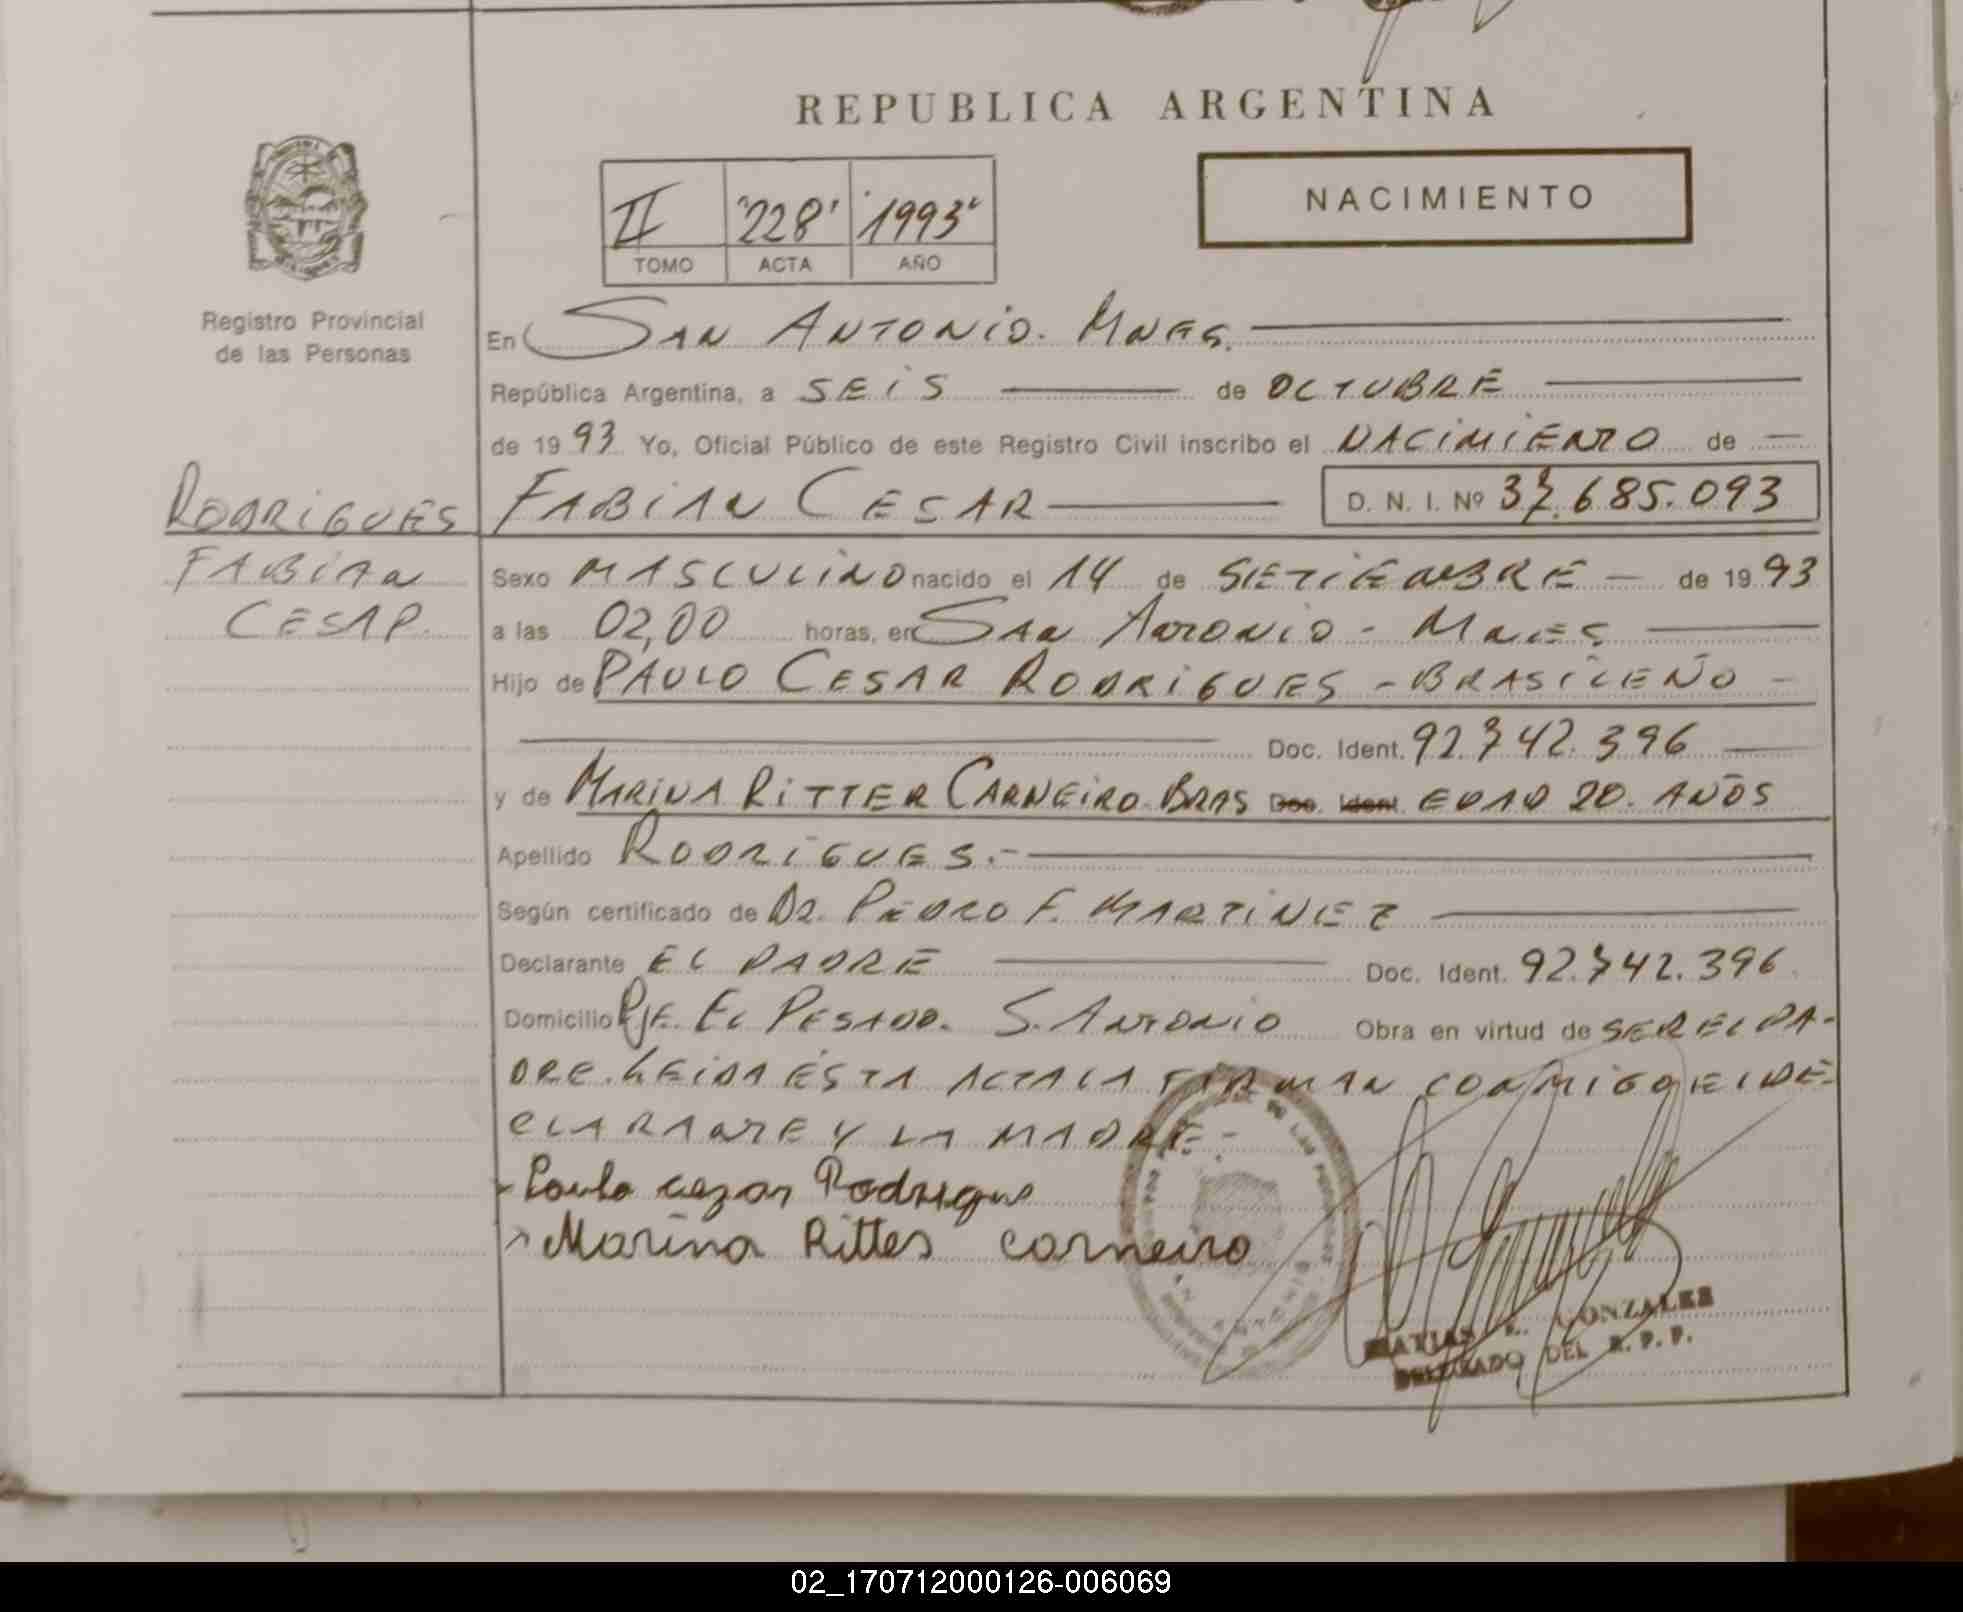 REPUBLICA ARGENTINA
NACIMIENTO
II 228 1993
TOMO ACTA AÑO
Registro Provincial
de las Personas
En SAN ANTONIO. MNES.
República Argentina, a SEIS de OCTUBRE
de 1993 Yo, Oficial Público de este Registro Civil inscribo el NACIMIENTO de
RODRIGUES
FABIAN
CESAR
FABIAN CESAR D. N. I. Nº 37.685.093
Sexo MASCULINO nacido el 14 de SETIEMBRE de 1993
a las 02,00 horas, en SAN ANTONIO - MNES
Hijo de PAULO CESAR RODRIGUES - BRASILEÑO -
Doc. Ident. 92.742.396
y de MARINA RITTER CARNEIRO. BRAS Doc. Ident. EDAD 20. AÑOS
Apellido RODRIGUES.-
Según certificado de DR. PEDRO F. MARTINEZ
Declarante EL PADRE Doc. Ident. 92.742.396
Domicilio PJE. EL PESADO. S. ANTONIO Obra en virtud de SER EL PA-
DRE. LEIDA ÉSTA ACTA LA FIRMAN CONMIGO EL DE-
CLARANTE Y LA MADRE-
Paulo cezar Rodrigue
Marina Ritter Carneiro
MATIAS R. GONZALES
DELEGADO DEL R. P. P.
02_170712000126-006069